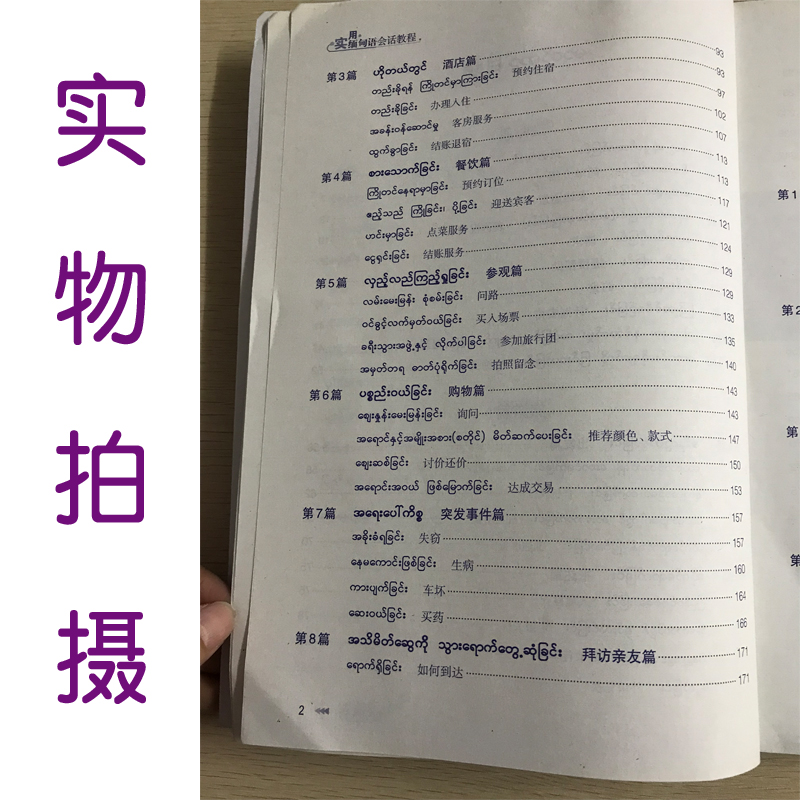 实物拍摄
实用缅甸语会话教程
第3篇 ဟိုတယ်တွင် 酒店篇 93
တည်းခိုရန် ကြိုတင်မှာကြားခြင်း 预约住宿 93
တည်းခိုခြင်း 办理入住 97
အခန်းဝန်ဆောင်မှု 客房服务 102
ထွက်ခွာခြင်း 结账退宿 107
第4篇 စားသောက်ခြင်း 餐饮篇 113
ကြိုတင်နေရာမှာခြင်း 预约订位 113
ဧည့်သည် ကြိုခြင်း၊ ပို့ခြင်း 迎送宾客 117
ဟင်းမှာခြင်း 点菜服务 121
ငွေရှင်းခြင်း 结账服务 124
第5篇 လှည့်လည်ကြည့်ရှုခြင်း 参观篇 129
လမ်းမေးမြန်း စုံစမ်းခြင်း 问路 129
ဝင်ခွင့်လက်မှတ်ဝယ်ခြင်း 买入场票 133
ခရီးသွားအဖွဲ့နှင့် လိုက်ပါခြင်း 参加旅行团 135
အမှတ်တရ ဓာတ်ပုံရိုက်ခြင်း 拍照留念 140
第6篇 ပစ္စည်းဝယ်ခြင်း 购物篇 143
ဈေးနှုန်းမေးမြန်းခြင်း 询问 143
အရောင်နှင့်အမျိုးအစား(စတိုင်) မိတ်ဆက်ပေးခြင်း 推荐颜色、款式 147
ဈေးဆစ်ခြင်း 讨价还价 150
အရောင်းအဝယ် ဖြစ်မြောက်ခြင်း 达成交易 153
第7篇 အရေးပေါ်ကိစ္စ 突发事件篇 157
အခိုးခံရခြင်း 失窃 157
နေမကောင်းဖြစ်ခြင်း 生病 160
ကားပျက်ခြင်း 车坏 164
ဆေးဝယ်ခြင်း 买药 166
第8篇 အသိမိတ်ဆွေကို သွားရောက်တွေ့ဆုံခြင်း 拜访亲友篇 171
ရောက်ရှိခြင်း 如何到达 171
2
第1
第2
第
第